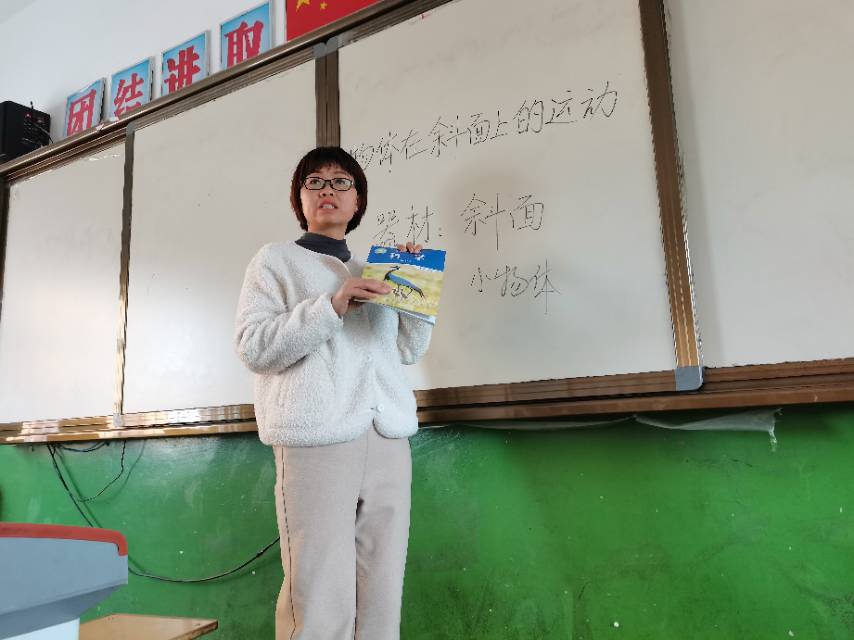 团结进取
物体在斜面上的运动
器材：斜面
小物体
科学